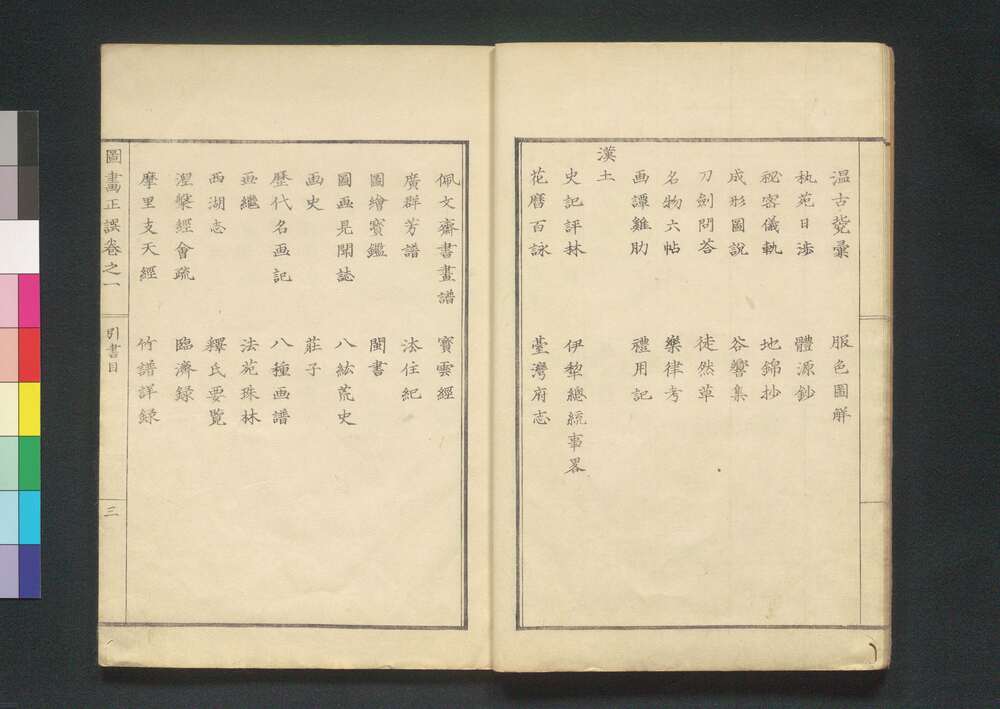 温古䓟彙　服色圖解
秇苑日渉　體源鈔
秘密儀軌　地錦抄
成形圖說　谷響集
刀劍問答　徒然草
名物六帖　樂律考
画譚雞肋　禮用記
漢土
史記評林　伊犂總統事畧
花曆百詠　臺灣府志
佩文齋書畫譜　寶雲經
廣群芳譜　法住紀
圖繪寳鑑　閩書
圖画見聞誌　八紘荒史
画史　莊子
歷代名画記　八種画譜
画繼　法苑珠林
西湖志　釋氏要覧
涅槃經會疏　臨濟録
摩里支天經　竹譜詳録
圖畵正誤卷之一　引書目　三